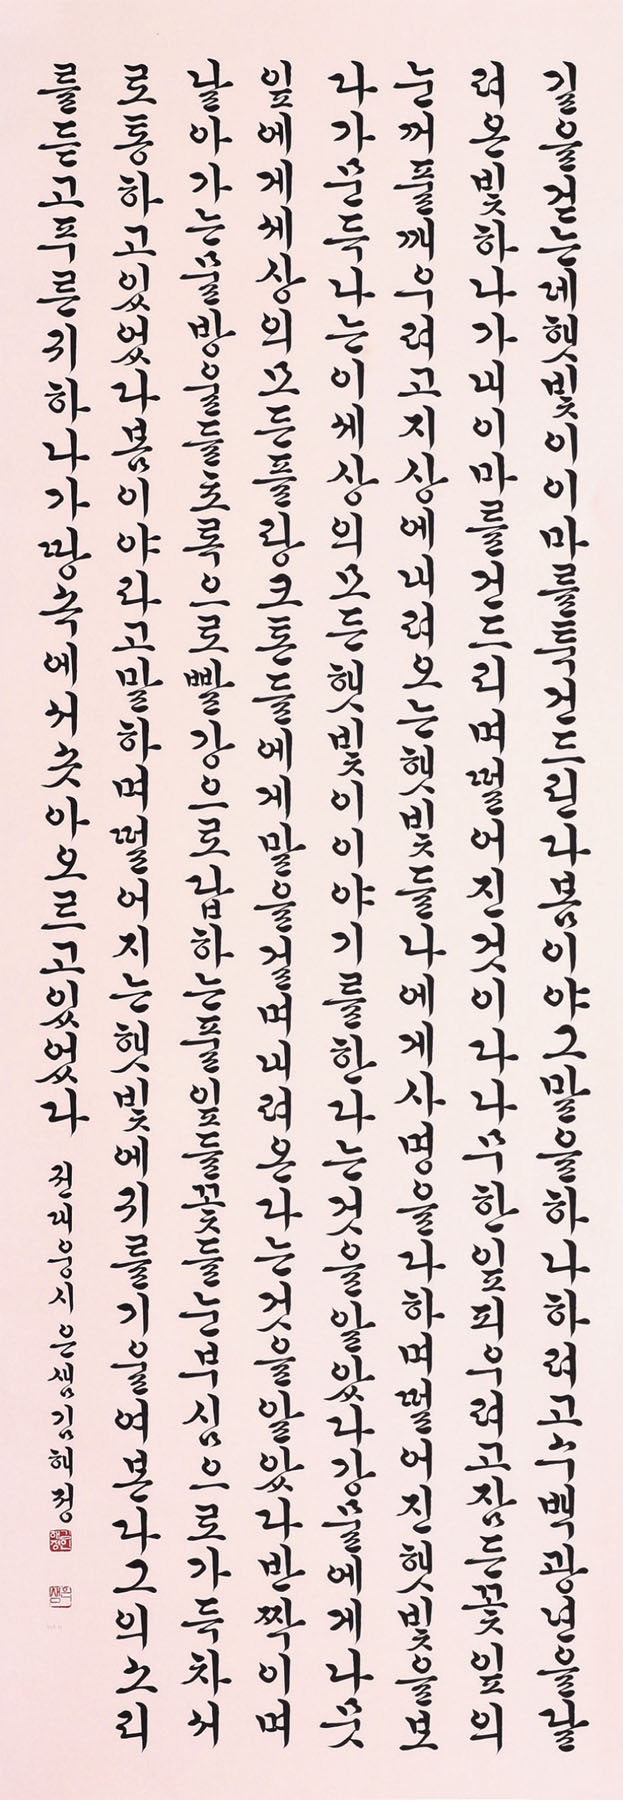 길을걷는데햇빛이이마를툭건드린다봄이야그말을하나하려고수백광년을달
려온빛하나가내이마를건드리며떨어진것이다나무한잎피우려고잠든꽃잎의
눈꺼풀깨우려고지상에내려오는햇빛들나에게사명을다하며떨어진햇빛을보
다가문득나는이세상의모든햇빛이이야기를한다는것을알았다강물에게나뭇
잎에게세상의모든플랑크톤들에게말을걸며내려온다는것을알았다반짝이며
날아가는물방울들초록으로빨강으로답하는풀잎들꽃들눈부심으로가득차서
로통하고있었다봄이야라고말하며떨어지는햇빛에귀를기울여본다그의소리
를듣고푸른귀하나가땅속에서솟아오르고있었다 권대웅시 은샘김해정